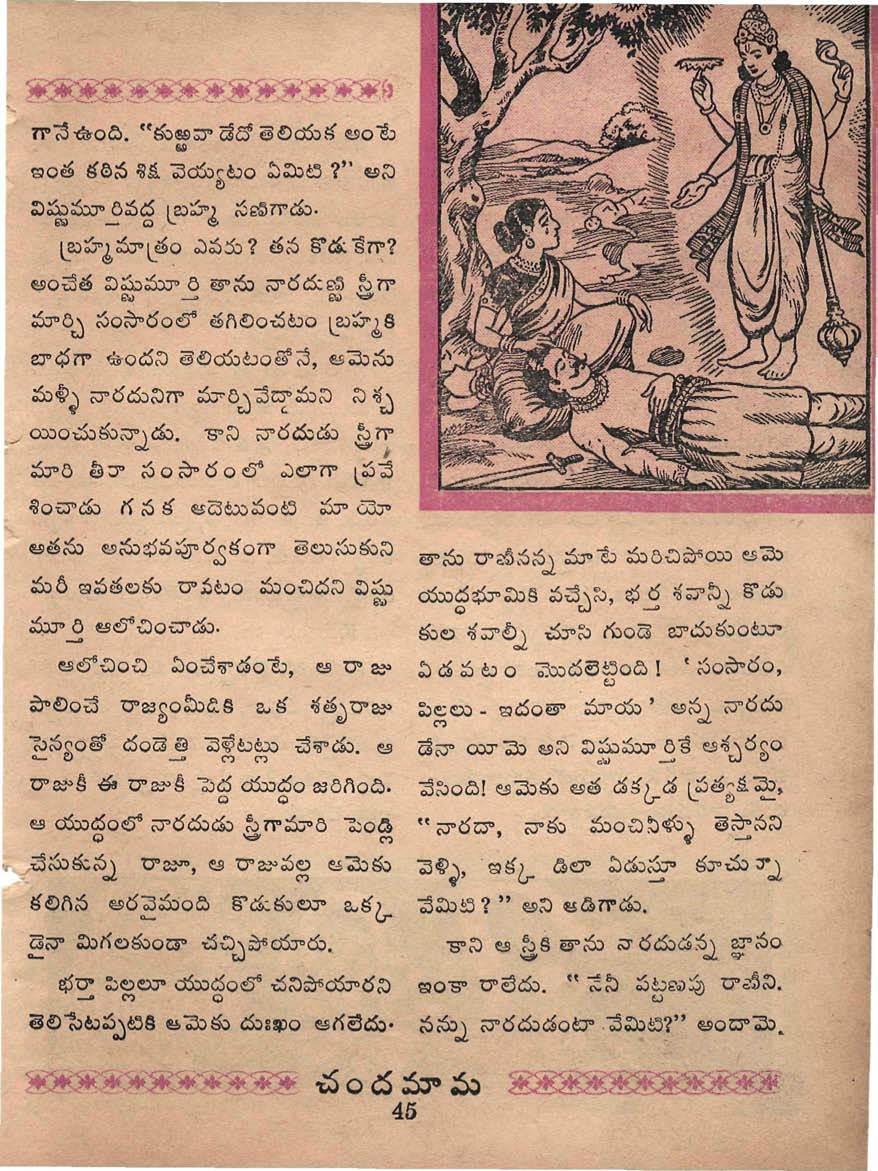 గానే ఉంది. “కుఱ్ఱవాడేదో తెలియక అంటే
ఇంత కఠిన శిక్ష వెయ్యటం ఏమిటి ?” అని
విష్ణుమూర్తివద్ద బ్రహ్మ సణిగాడు.
బ్రహ్మమాత్రం ఎవరు? తన కొడుకేగా?
అంచేత విష్ణుమూర్తి తాను నారదుణ్ణి స్త్రీగా
మార్చి సంసారంలో తగిలించటం బ్రహ్మకి
బాధగా ఉందని తెలియటంతోనే, ఆమెను
మళ్ళీ నారదునిగా మార్చివేద్దామని నిశ్చ
యించుకున్నాడు. కాని నారదుడు స్త్రీగా
మారి తీరా సంసారంలో ఎలాగా ప్రవే
శించాడు గనక అదెటువంటి మాయో
అతను అనుభవపూర్వకంగా తెలుసుకుని
మరీ ఇవతలకు రావటం మంచిదని విష్ణు
మూర్తి ఆలోచించాడు.
ఆలోచించి ఏంచేశాడంటే, ఆ రాజు
పాలించే రాజ్యంమీదికి ఒక శతృరాజు
సైన్యంతో దండెత్తి వెళ్లేటట్లు చేశాడు. ఆ
రాజుకీ ఈ రాజుకీ పెద్ద యుద్ధం జరిగింది.
ఆ యుద్ధంలో నారదుడు స్త్రీగామారి పెండ్లి
చేసుకున్న రాజూ, ఆ రాజువల్ల ఆమెకు
కలిగిన అరవైమంది కొడుకులూ ఒక్క
డైనా మిగలకుండా చచ్చిపోయారు.
భర్తా పిల్లలూ యుద్ధంలో చనిపోయారని
తెలిసేటప్పటికి ఆమెకు దుఃఖం ఆగలేదు.
తాను రాణీనన్న మాటే మరిచిపోయి ఆమె
యుద్ధభూమికి వచ్చేసి, భర్త శవాన్నీ కొడు
కుల శవాల్నీ చూసి గుండె బాదుకుంటూ
ఏడవటం మొదలెట్టింది! ‘సంసారం,
పిల్లలు - ఇదంతా మాయ’ అన్న నారదు
డేనా యీమె అని విష్ణుమూర్తికే ఆశ్చర్యం
వేసింది! ఆమెకు అత డక్కడ ప్రత్యక్షమై,
“నారదా, నాకు మంచినీళ్ళు తెస్తానని
వెళ్ళి, ఇక్క డిలా ఏడుస్తూ కూచున్నా
వేమిటి?” అని అడిగాడు.
కాని ఆ స్త్రీకి తాను నారదుడన్న జ్ఞానం
ఇంకా రాలేదు. “నేనీ పట్టణపు రాణీని.
నన్ను నారదుడంటా వేమిటి?” అందామె.
చందమామ
45